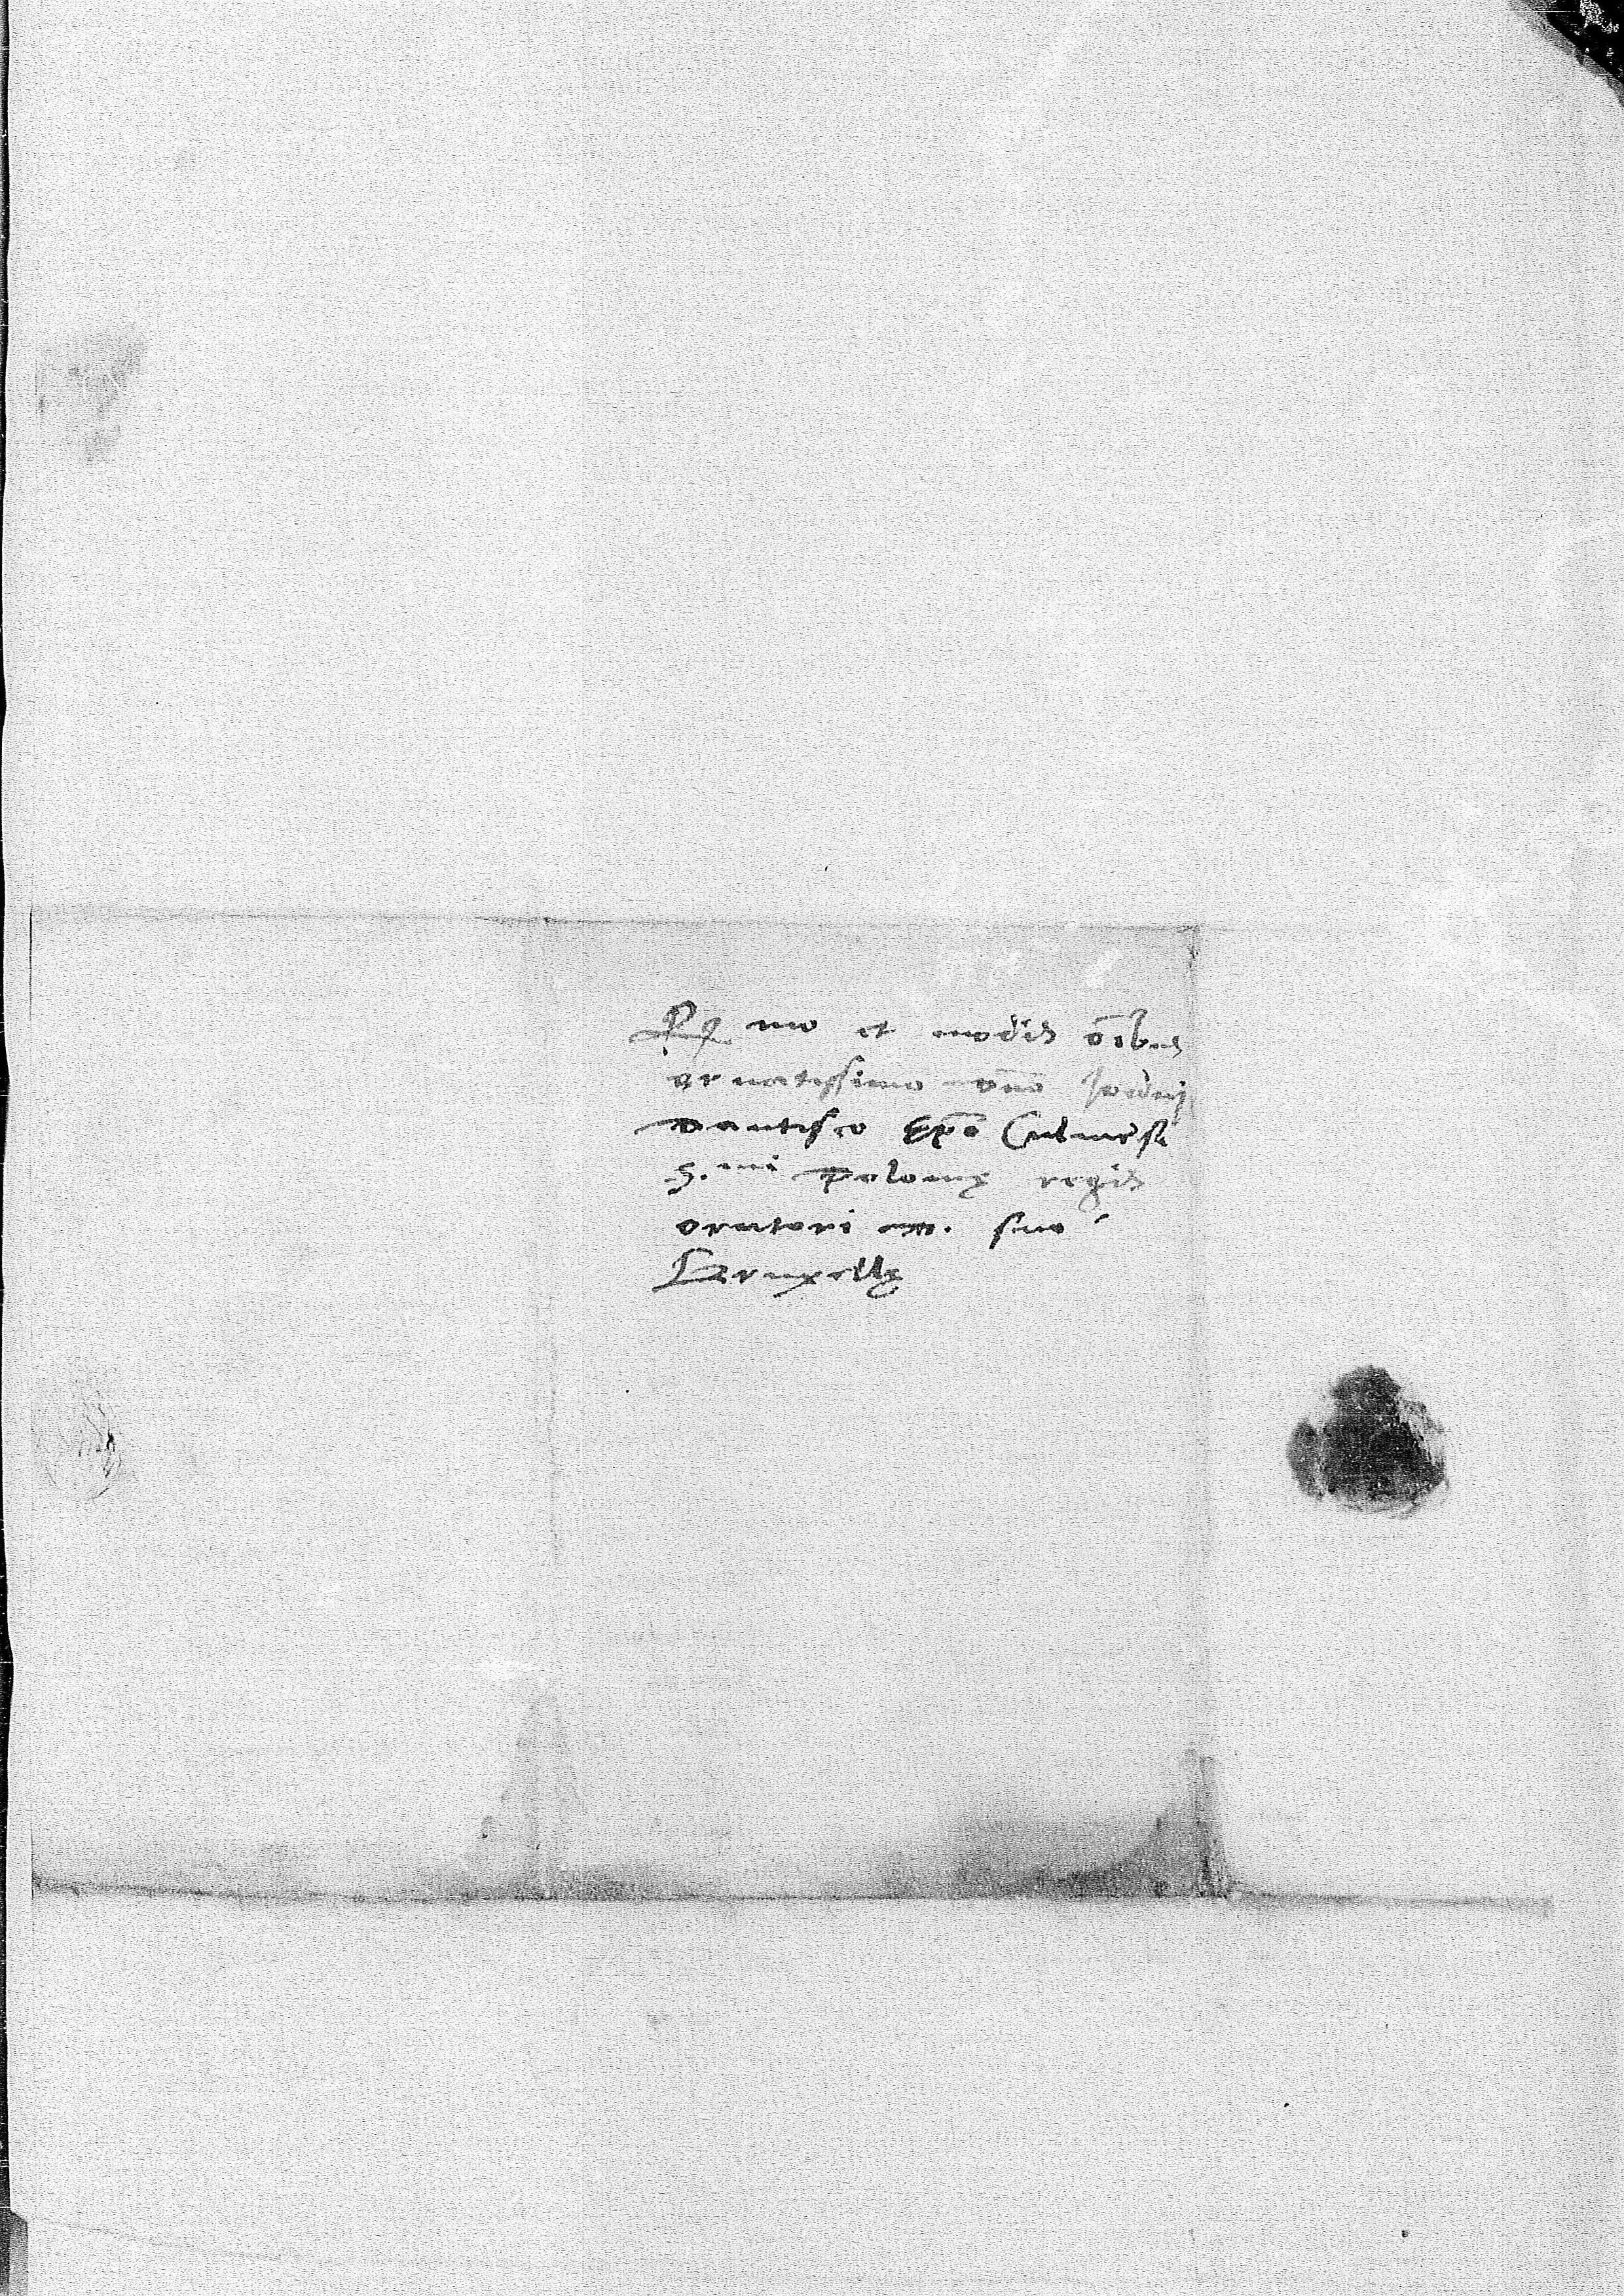 R.mo et modis oībus
ornatissimo dno Joanni
Dantisco Epō Culmēsi
S.mi Polonię regis
oratori etc. suo
Bruxellę